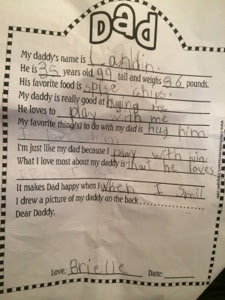 Dad
My daddy's name is Landin.
He is 35 years old, 99 tall and weighs 36 pounds.
His favorite food is spise chips.
My daddy is really good at huging me
He loves to play with me
My favorite thing(s) to do with my dad is hug him
I'm just like my dad because I play with him
What I love most about my daddy is that he loves
It makes Dad happy when I when I smil
I drew a picture of my daddy on the back
Dear Daddy,
Love, Brielle Date: